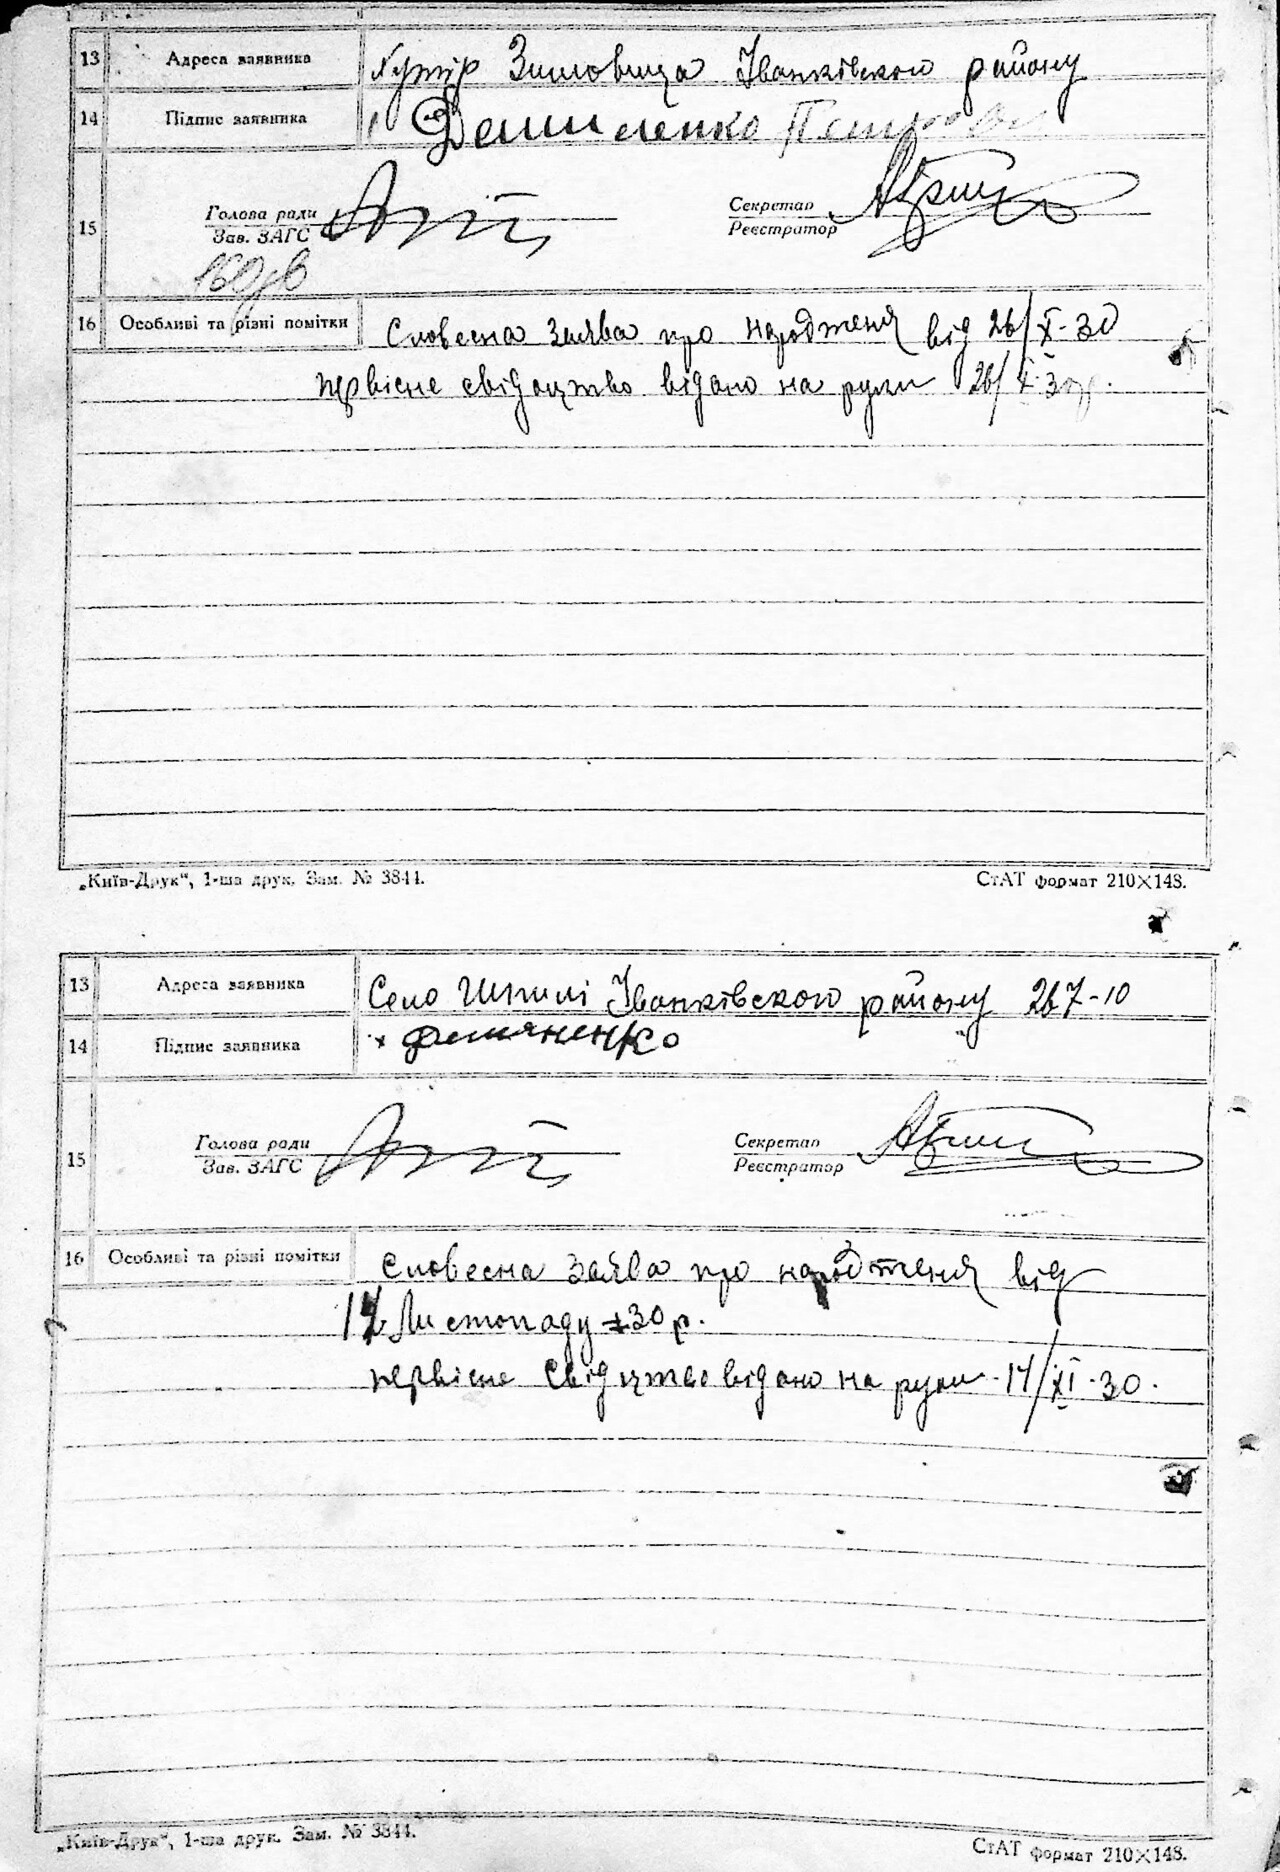 13 Адреса заявника Хутір Зимовища Іванківского району
14 Підпис заявника Демиленко
15 Голова ради Секретар
Зав. ЗАГС Реєстратор
16 Особливі та різні помітки Словесна заява про народженя від 26/X-30
первісне свідоцтво відано на руки 26/X
„Київ-Друк“, 1-ша друк. Зам. № 3844. СтАТ формат 210×148.
13 Адреса заявника Село Шпилі Іванківского району 267-10
14 Підпис заявника Демяненко
15 Голова ради Секретар
Зав. ЗАГС Реєстратор
16 Особливі та різні помітки Словесна заява про народженя від
Листопаду 30 р.
первісне свідцтво відано на руки 17/XI-30.
„Київ-Друк“, 1-ша друк. Зам. № 3844. СтАТ формат 210×148.